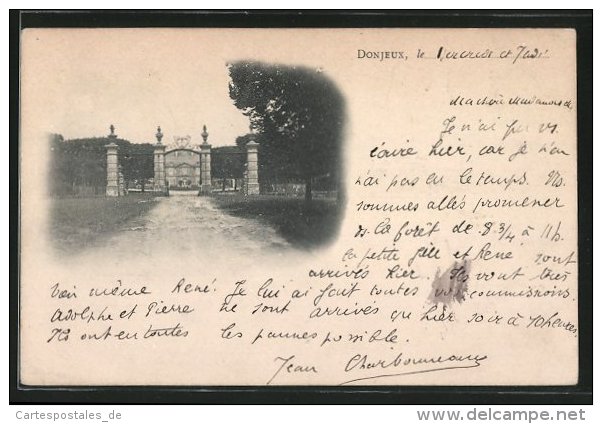 DONJEUX, le Vercredi et Jeudi
Ma chère Mademoiselle
Je n'ai pu vs.
écrire hier, car je n'en
n'ai pas eu le temps. Ns.
sommes allés promener
ds. la forêt de 8 3/4 à 11h.
la petite fille et René sont
arrivés hier. Ils vont très
bien même René. Je lui ai fait toutes vos commissions.
Adolphe et Pierre ne sont arrivés qu hier soir à 10 heures.
Ils ont eu toutes les pannes possible.
Jean Charbonneaux
Cartespostales_de
www.delcampe.net